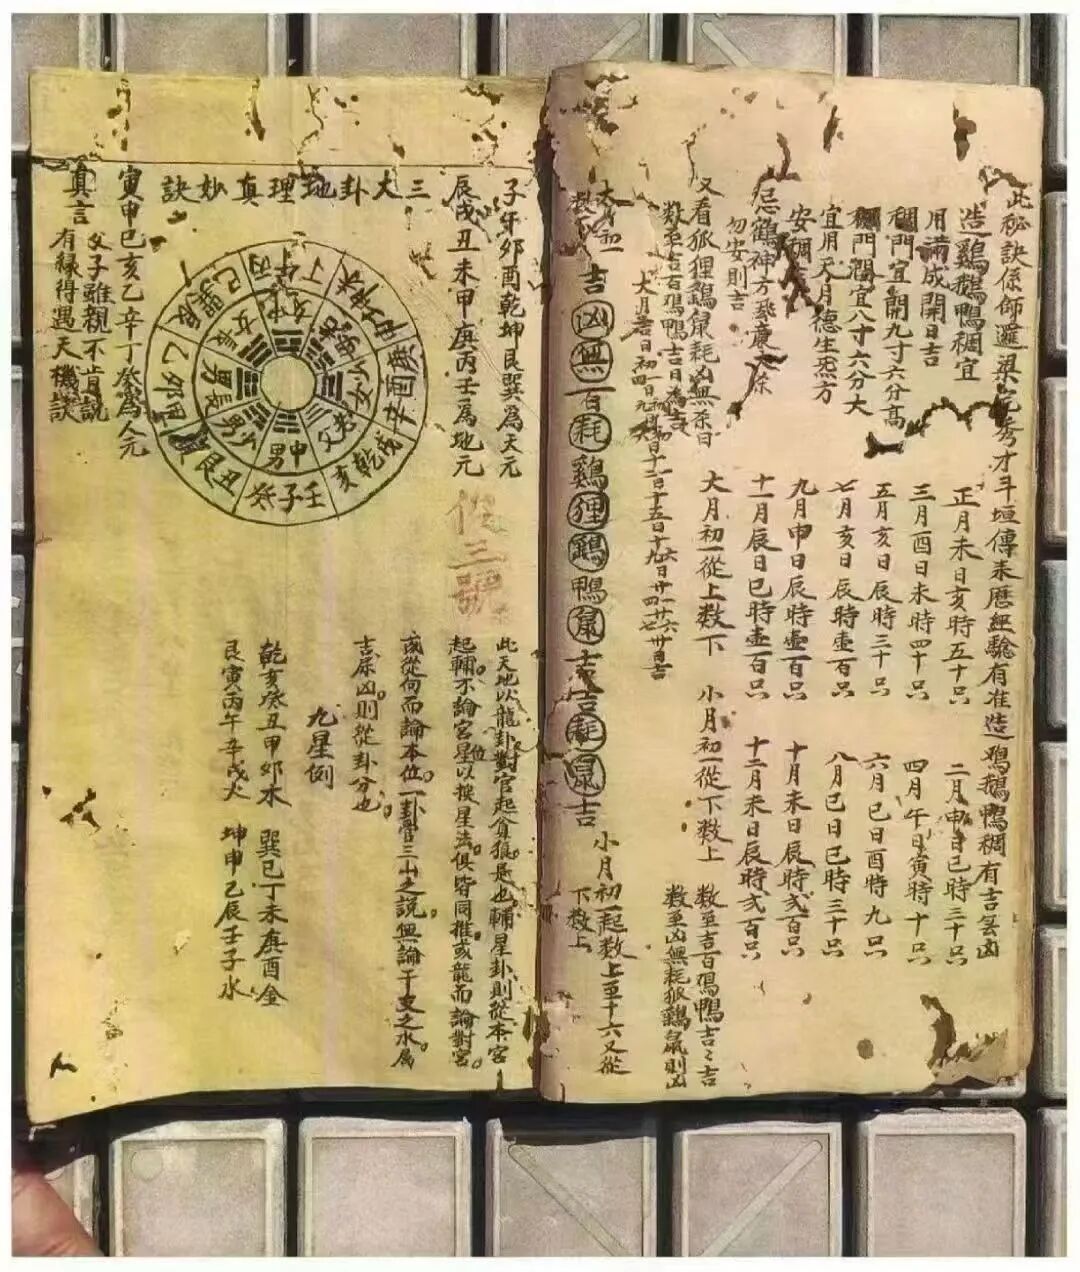 此秘訣係師邏梁完秀才斗垣傳來歷經驗有准造鴉鵝鴨稠有吉無凶
造鷄鵝鴨稠宜
用滿成開日吉
稠門宜開九寸六分高
稠門濶宜八寸六分大
宜用天月德生炁方
安稠吉
忌鶴神方
勿安則吉
正月未日亥時五十只
三月酉日未時四十只
五月亥日辰時三十只
七月亥日辰時壹百只
九月申日辰時壹百只
十一月辰日巳時壹百只
二月申日巳時三十只
四月午日寅時十只
六月巳日酉時九只
八月巳日巳時三十只
十月未日辰時弍百只
十二月未日辰時弍百只
又看狐狸鷄鼠耗凶無杀日
大月初一從上数下
小月初一從下数上
数至吉百鴉鴨吉日為吉
数至吉百鴉鴨吉吉
数至凶無耗狐鷄鼠則凶
大月
吉凶無百耗鷄狸鷄鴨鼠吉吉耗鼠吉
小月初一起数上至十六又從
下数上
三大卦地理真妙訣
子午卯酉乾坤艮巽為天元
辰戌丑未甲庚丙壬為地元
寅申巳亥乙辛丁癸為人元
真言
父子雖親不肯說
有緣得遇天機談
壬子癸
丑艮
乙卯
巽巳
丙午丁
庚酉辛
戌乾亥
三號
此天地以龍卦對宮起貪狼是也輔星卦則從本宮
起輔不論宮位星以挨星法俱皆同推或龍而論對宮
或從向而論本位一卦管三山之說無論干支之水屬
吉屎凶則從卦分也
九星例
乾亥癸丑甲卯木
巽巳丁未庚酉金
艮寅丙午辛戌火
坤申乙辰壬子水